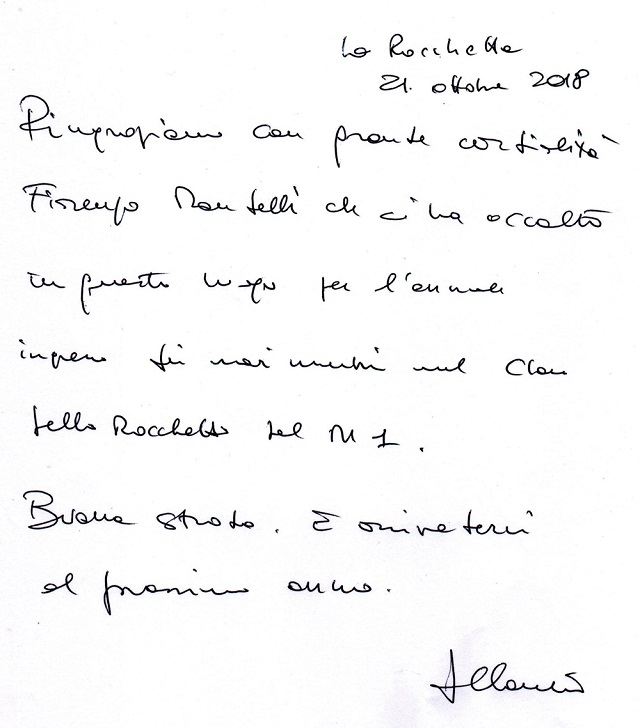 La Rocchetta
21. ottobre 2018
Ringraziamo con grande cordialità
Fiorenzo Mantelli che ci ha accolto
in questo luogo per l'annuale
ingresso dei nuovi membri nel Clan
della Rocchetta del M 1.
Buona strada. E arrivederci
al prossimo anno.